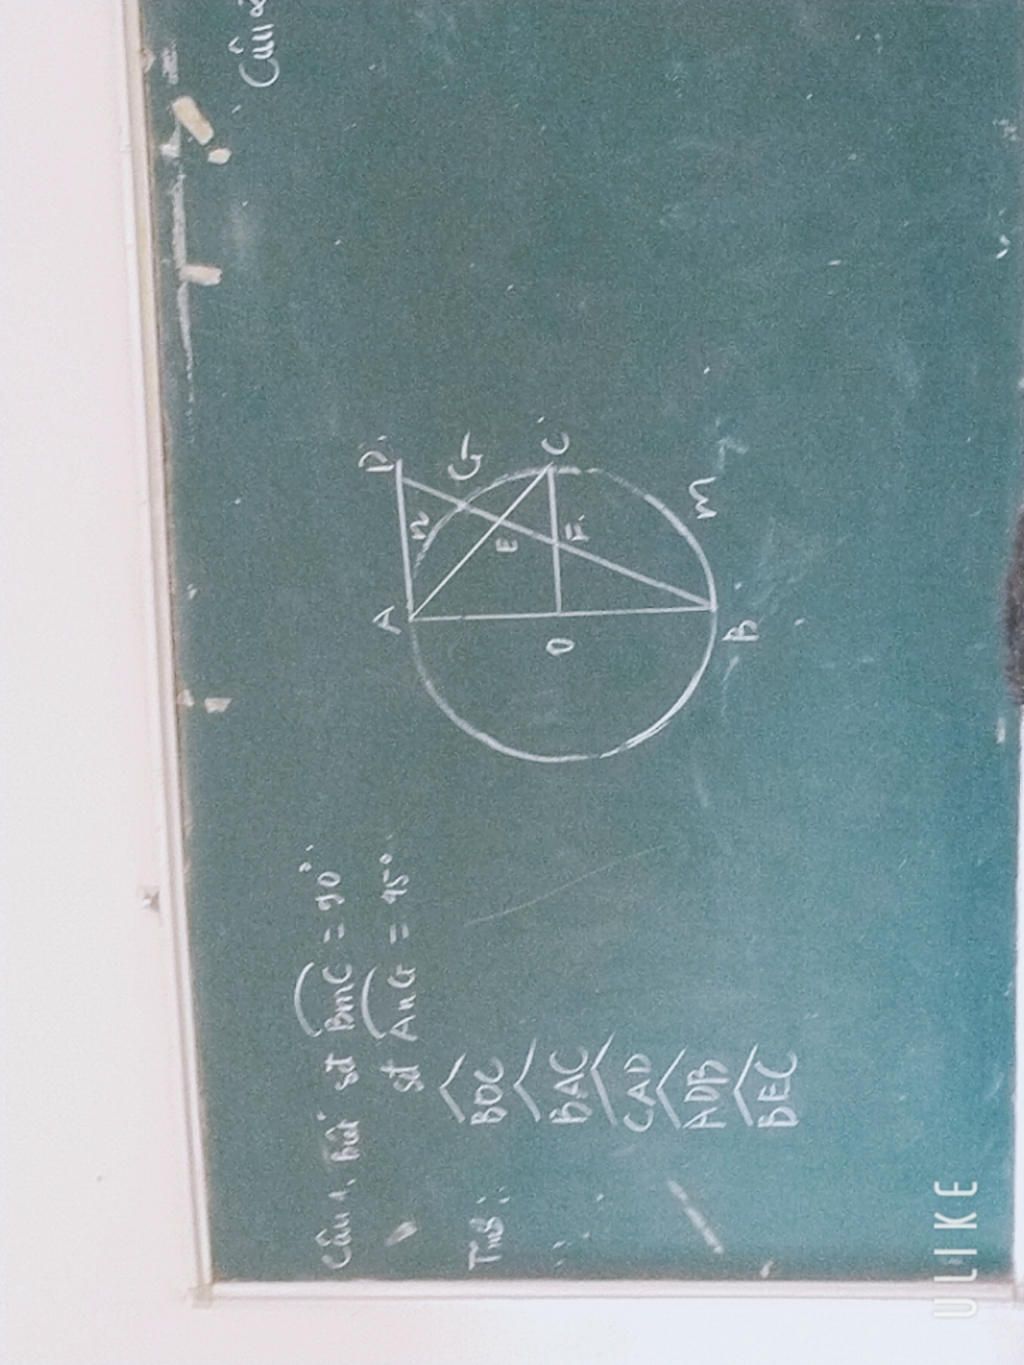 Câu 1. biết sđ BmC = 90°.
sđ AnG = 45°.
Tính:
BOC
BAC
CAD
ADB
BEC
A
D
n
G
E
C
O
F
B
m
Câu
ULIKE